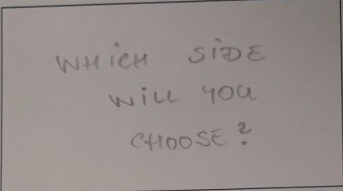 WHICH SIDE
WILL YOU
CHOOSE?